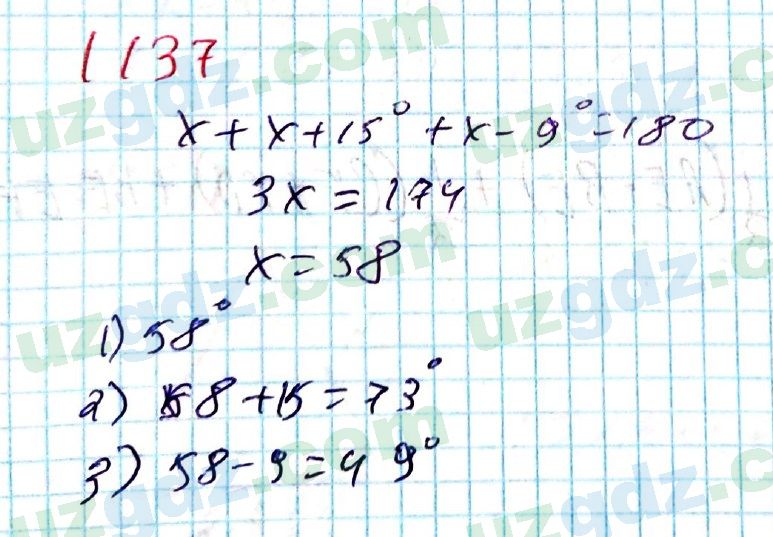 1137
x + x + 15° + x - 9° = 180
3x = 174
x = 58
1) 58°
2) 58 + 15 = 73°
3) 58 - 9 = 49°
uzgdz.com